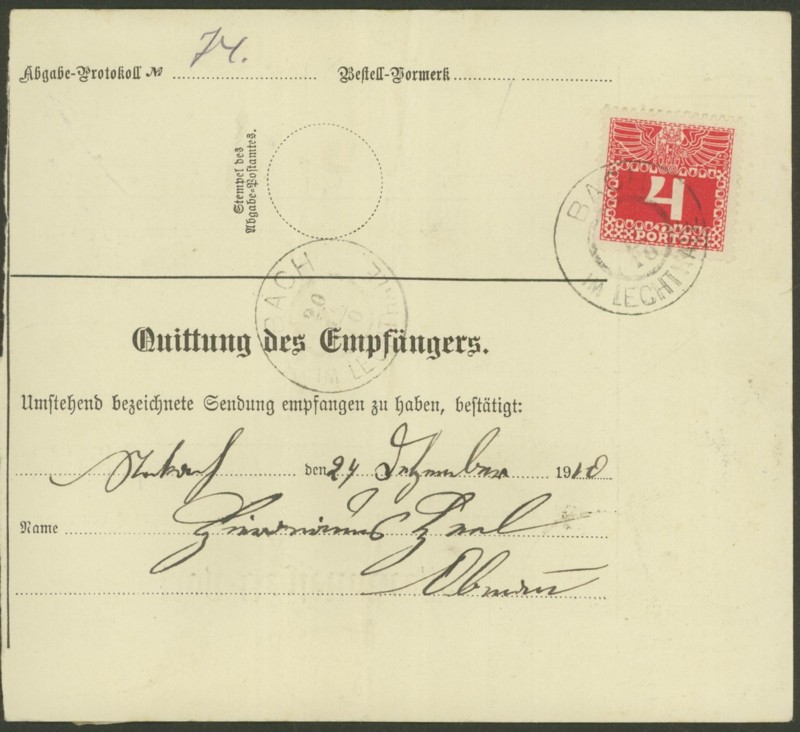 74.
Abgabe-Protokoll № Bestell-Vormerk
Stempel des
Abgabe-Postamtes.
4
PORTO
BACH
IM LECHTALE
10
BACH
20
IM LECHTALE
Quittung des Empfängers.
Umstehend bezeichnete Sendung empfangen zu haben, bestätigt:
den 24 Dezember 1910
Name